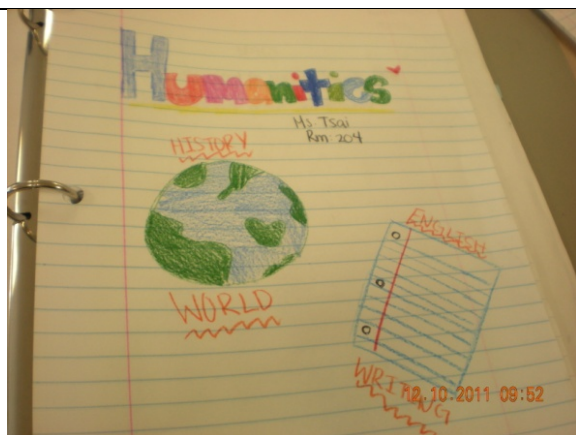 Humanitics
Ms. Tsai
Rm 204
HISTORY
WORLD
ENGLISH
WRITING
12.10.2011 09:52